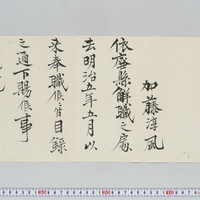 加藤淳風
依廃縣解職之處
去明治五年五月以
来奉職候ニ付目録
之通下賜候事